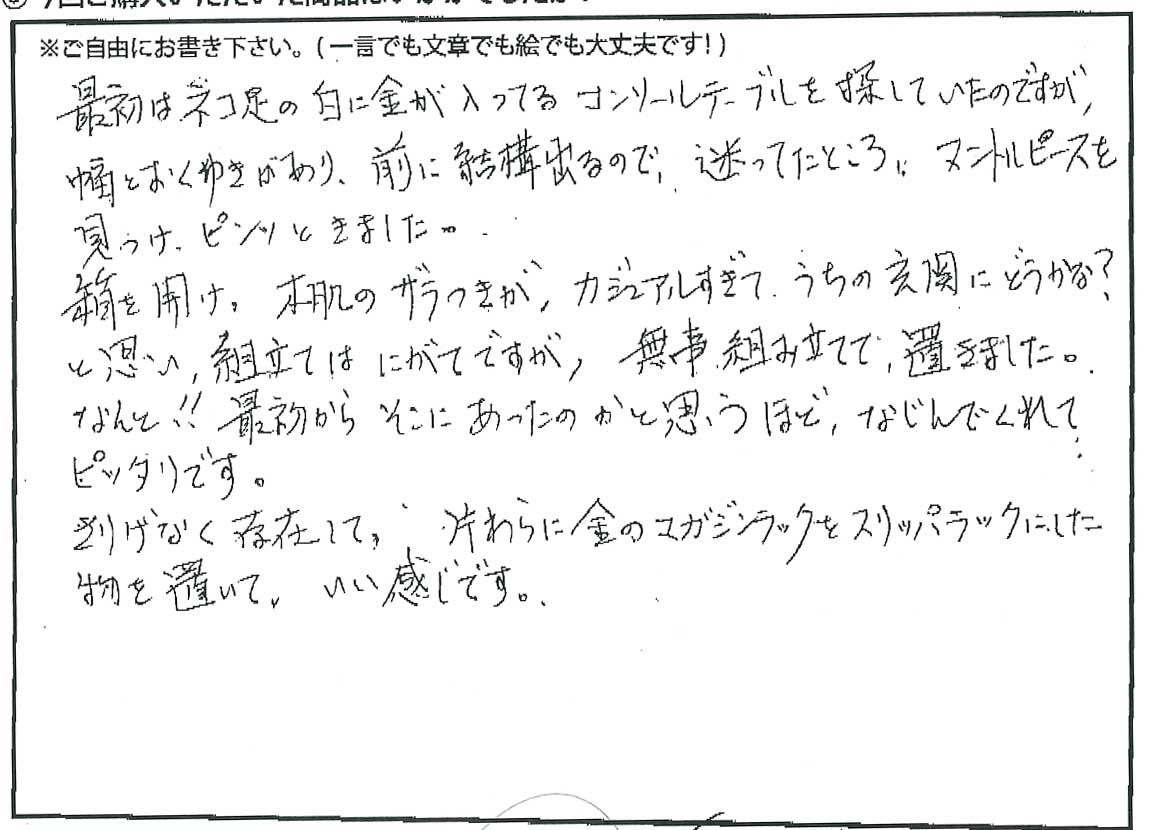 今回ご購入いただいた商品はいかがでしたか?
※ご自由にお書き下さい。(一言でも文章でも絵でも大丈夫です!)
最初はネコ足の白に金が入ってるコンソールテーブルを探していたのですが,
幅とおくゆきがあり、前に結構出るので、迷ってたところ、マントルピースを
見つけ、ピンッときました。
箱を開け、木肌のザラつきが、カジュアルすぎて、うちの玄関にどうかな?
と思い、組立てはにがてですが、無事組み立てて、置きました。
なんと!!最初からそこにあったのかと思うほど、なじんでくれて
ピッタリです。
さりげなく存在して、片わらに金のマガジンラックをスリッパラックにした
物を置いて、いい感じです。